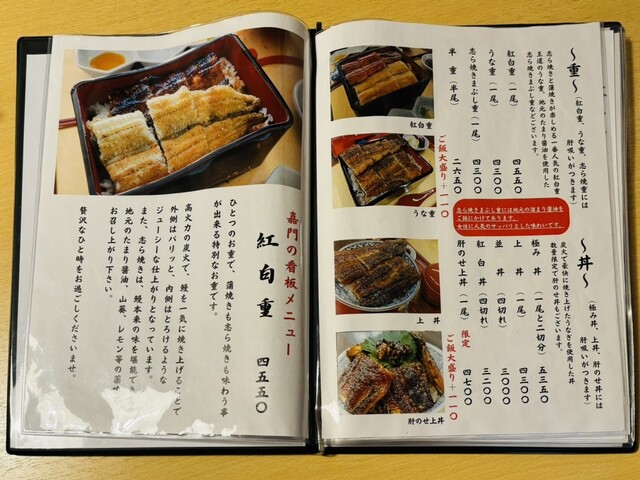 〜重〜
（紅白重、うな重、志ら焼重には
肝吸いがつきます）
志ら焼きと蒲焼きが楽しめる一番人気の紅白重
王道のうな重、地元のたまり醤油を使用した
志ら焼きまぶし重などございます。
紅白重（一尾） 四五五〇
うな重（一尾） 四三〇〇
志ら焼きまぶし重（一尾） 四三〇〇
半重（半尾） 二六五〇
ご飯大盛り＋一一〇
志ら焼きまぶし重には地元の溜まり醤油を
ご飯にかけてあります。
女性に人気のサッパリとした味わいです。
紅白重
うな重
〜丼〜
（極み丼、上丼、肝のせ丼には
肝吸いがつきます）
炭火で豪快に焼き上げたうなぎを使用した丼
数量限定で肝のせ丼もございます。
極み丼（一尾と二切分） 五三五〇
上丼（一尾） 四三〇〇
並丼（四切れ） 三〇〇〇
紅白丼（四切れ） 三二〇〇
肝のせ上丼（一尾） 限定 四七〇〇
ご飯大盛り＋一一〇
上丼
肝のせ上丼
嘉門の看板メニュー
紅白重 四五五〇
ひとつのお重で、蒲焼きも志ら焼きも味わう事
が出来る特別なお重です。
高火力の炭火で、鰻を一気に焼き上げることで
外側はパリッと、内側はとろけるような
ジューシーな仕上がりとなっています。
また、志ら焼きは、鰻本来の味を堪能でき
地元のたまり醤油、山葵、レモン等の薬味
お召し上がり下さい。
贅沢なひと時をお過ごしくださいませ。